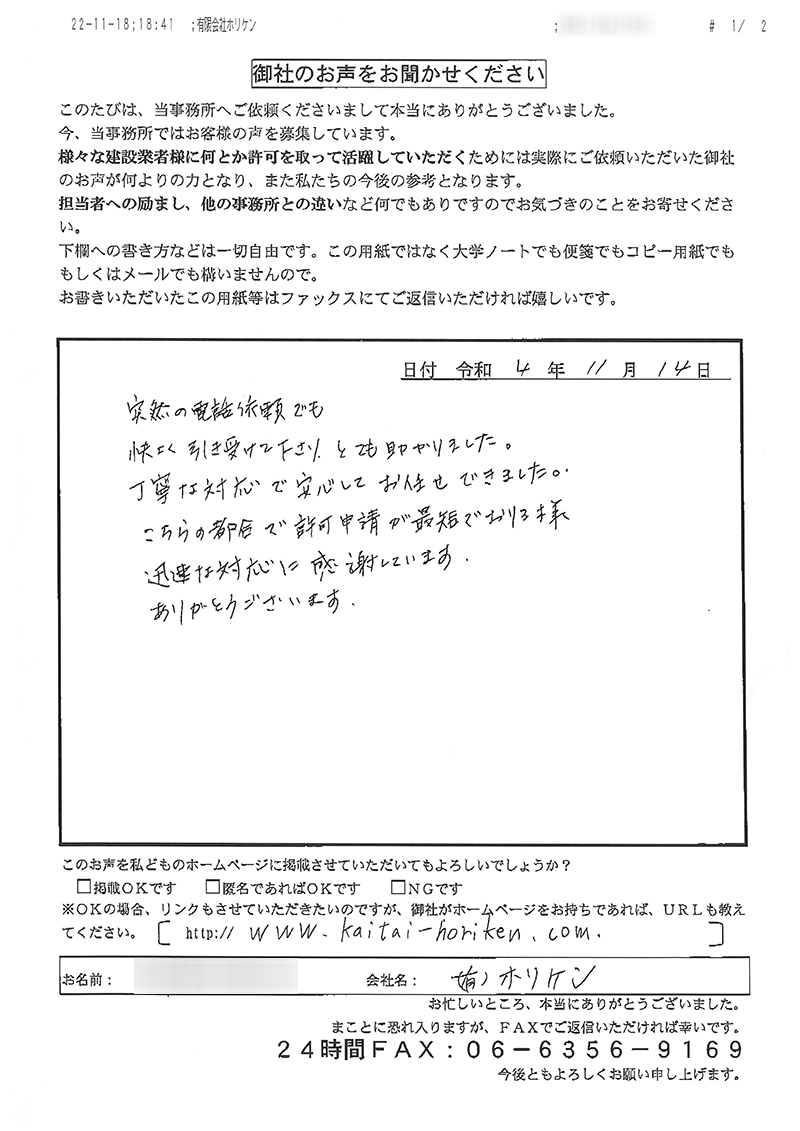 22-11-18;18:41 ;有限会社ホリケン ; # 1/ 2
御社のお声をお聞かせください
このたびは、当事務所へご依頼くださいまして本当にありがとうございました。
今、当事務所ではお客様の声を募集しています。
様々な建設業者様に何とか許可を取って活躍していただくためには実際にご依頼いただいた御社
のお声が何よりの力となり、また私たちの今後の参考となります。
担当者への励まし、他の事務所との違いなど何でもありですのでお気づきのことをお寄せくださ
い。
下欄への書き方などは一切自由です。この用紙ではなく大学ノートでも便箋でもコピー用紙でも
もしくはメールでも構いませんので。
お書きいただいたこの用紙等はファックスにてご返信いただければ嬉しいです。
日付 令和 4 年 11 月 14 日
突然の電話依頼でも
快よく引き受けて下さり とても助かりました。
丁寧な対応で安心してお任せできました。
こちらの都合で許可申請が最短でおりる様
迅速な対応に感謝しています.
ありがとうございます.
このお声を私どものホームページに掲載させていただいてもよろしいでしょうか？
□掲載ＯＫです □匿名であればＯＫです □ＮＧです
※ＯＫの場合、リンクもさせていただきたいのですが、御社がホームページをお持ちであれば、ＵＲＬも教え
てください。 [ http:// www.kaitai-horiken.com. ]
お名前： 会社名： (有)ホリケン
お忙しいところ、本当にありがとうございました。
まことに恐れ入りますが、ＦＡＸでご返信いただければ幸いです。
２４時間ＦＡＸ：０６－６３５６－９１６９
今後ともよろしくお願い申し上げます。